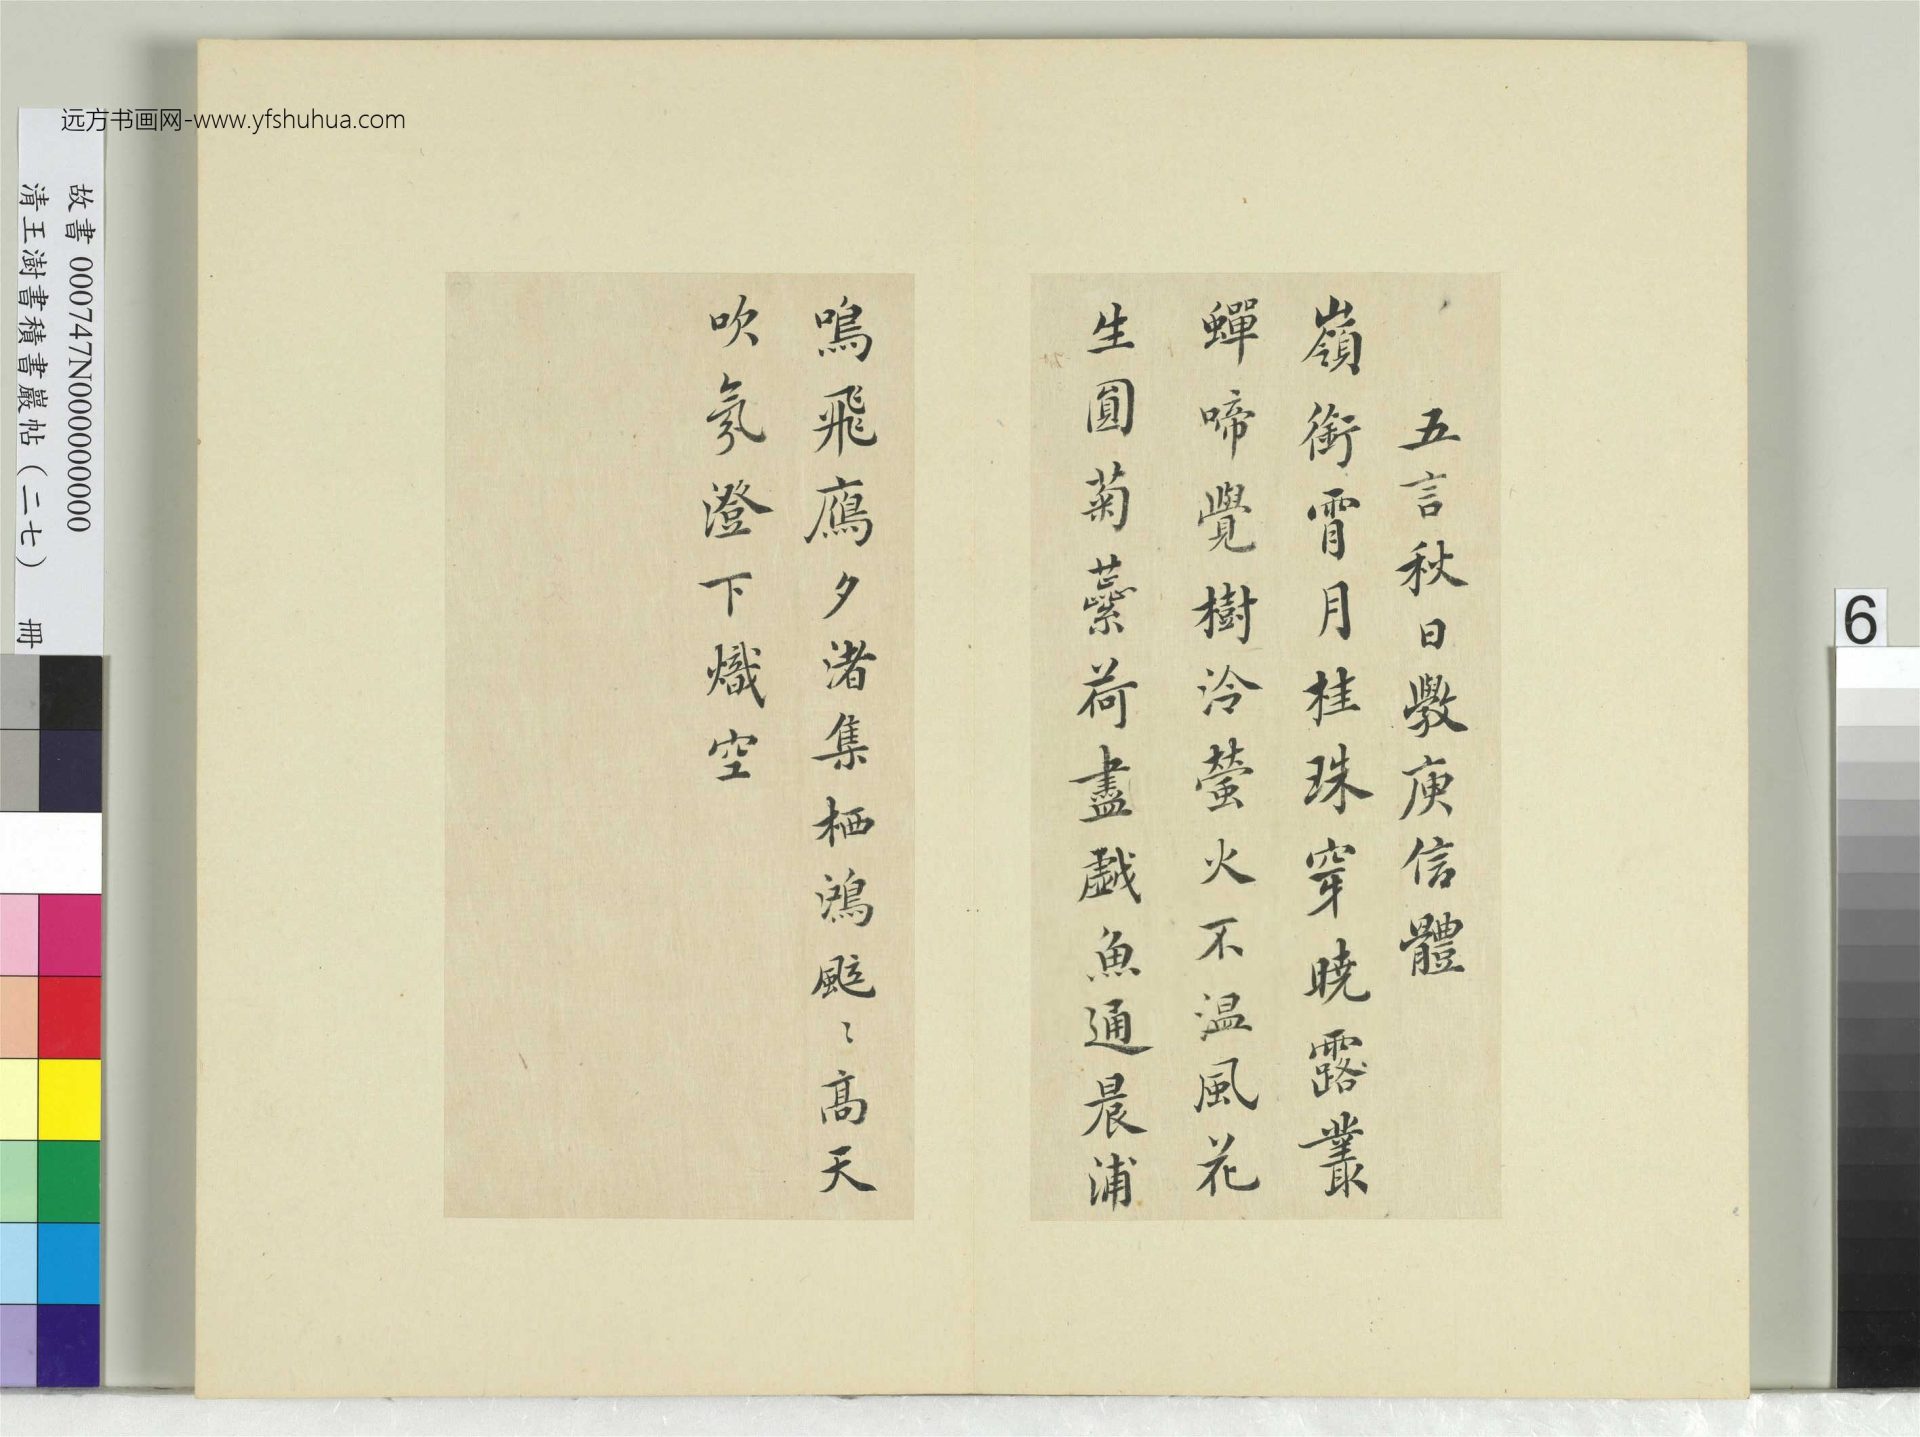 五言秋日斅庾信體
嶺銜霄月桂珠穿曉露叢
蟬啼覺樹冷螢火不温風花
生圓菊蘂荷盡戱魚通晨浦
鳴飛鴈夕渚集栖鴻颭〻高天
吹氛澄下熾空
远方书画网-www.yfshuhua.com
故書 000747N000000000
清王澍書積書巖帖（二七） 冊
6